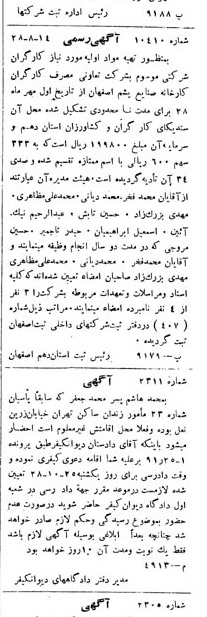 پ ۹۱۸۸ رئیس اداره ثبت شرکتها
شماره ۱۰۴۱۰ آگهی رسمی ۱۴-۸-۲۸
بمنظور تهیه مواد اولیه مورد نیاز کارگران
شرکتی موسوم بشرکت تعاونی مصرف کارگران
کارخانه صنایع پشم اصفهان از تاریخ اول مهر ماه
۲۸ برای مدت نامحدودی تشکیل شده محل آن
سندیکای کارگران و کشاورزان استان دهم و
سرمایه آن مبلغ ۱۹۹۸۰۰ ریال است که به ۳۳۳
سهم ۶۰۰ ریالی با اسم ممتازه تقسیم شده و صدی
۳۴ آن تأدیه گردیده است. هیئت مدیره آن عبارتند
از آقایان محمد فخر. محمد دیانی. محمدعلی مظاهری.
مهدی بزرگ زاد. حسین تابش. عبدالرحیم نیک
آئین. اسمعیل ابراهیمیان. حیدر تاجمیر. حسین
مروجی که در مدت دو سال انجام وظیفه مینمایند و
آقایان محمدفخر. محمددیانی. محمدعلی مظاهری
مهدی بزرگ زاد صاحبان امضاء تعیین شده اند که کلیه
اسناد ومراسلات وتعهدات مربوطه بشرکت را ۳ نفر
از ۴ نفر نامبرده امضاء مینمایند. مراتب ذیل شماره
(۴۰۷) در دفتر ثبت شرکتهای داخلی ثبت اصفهان
ثبت گردیده.
پ-۹۱۷۹ رئیس ثبت استان دهم اصفهان
شماره ۲۳۱۱ آگهی
بمحمد هاشم پسر محمد جعفر که سابقا پاسبان
شماره ۲۳ مأمور زندان ساکن تهران خیابان زرین
نعل بوده وفعلا محل اقامتش غیرمعلوم است احضار
میشود باینکه آقای دادستان دیوانکیفر طبق پرونده
۱-۲۵ر۹۱ برعلیه شما اقامه دعوی کیفری نموده و
وقت دادرسی برای روز یکشنبه ۲۵-۱۰-۲۸ تعیین
شده لازمست درموعد مقرر جهة داد رسی در شعبه
اول دادگاه دیوان کیفر حاضر شوید درصورت عدم
حضور بموضوع رسیدگی وحکم لازم صادر خواهد
شد چنانچه بعداً ابلاغی بوسیله آگهی لازم باشد
فقط یک نوبت ومدت آن ۱۰ روز خواهد بود
م-۴۹۱۳
مدیر دفتر دادگاههای دیوانکیفر
شماره ۲۳۰۵ آگهی